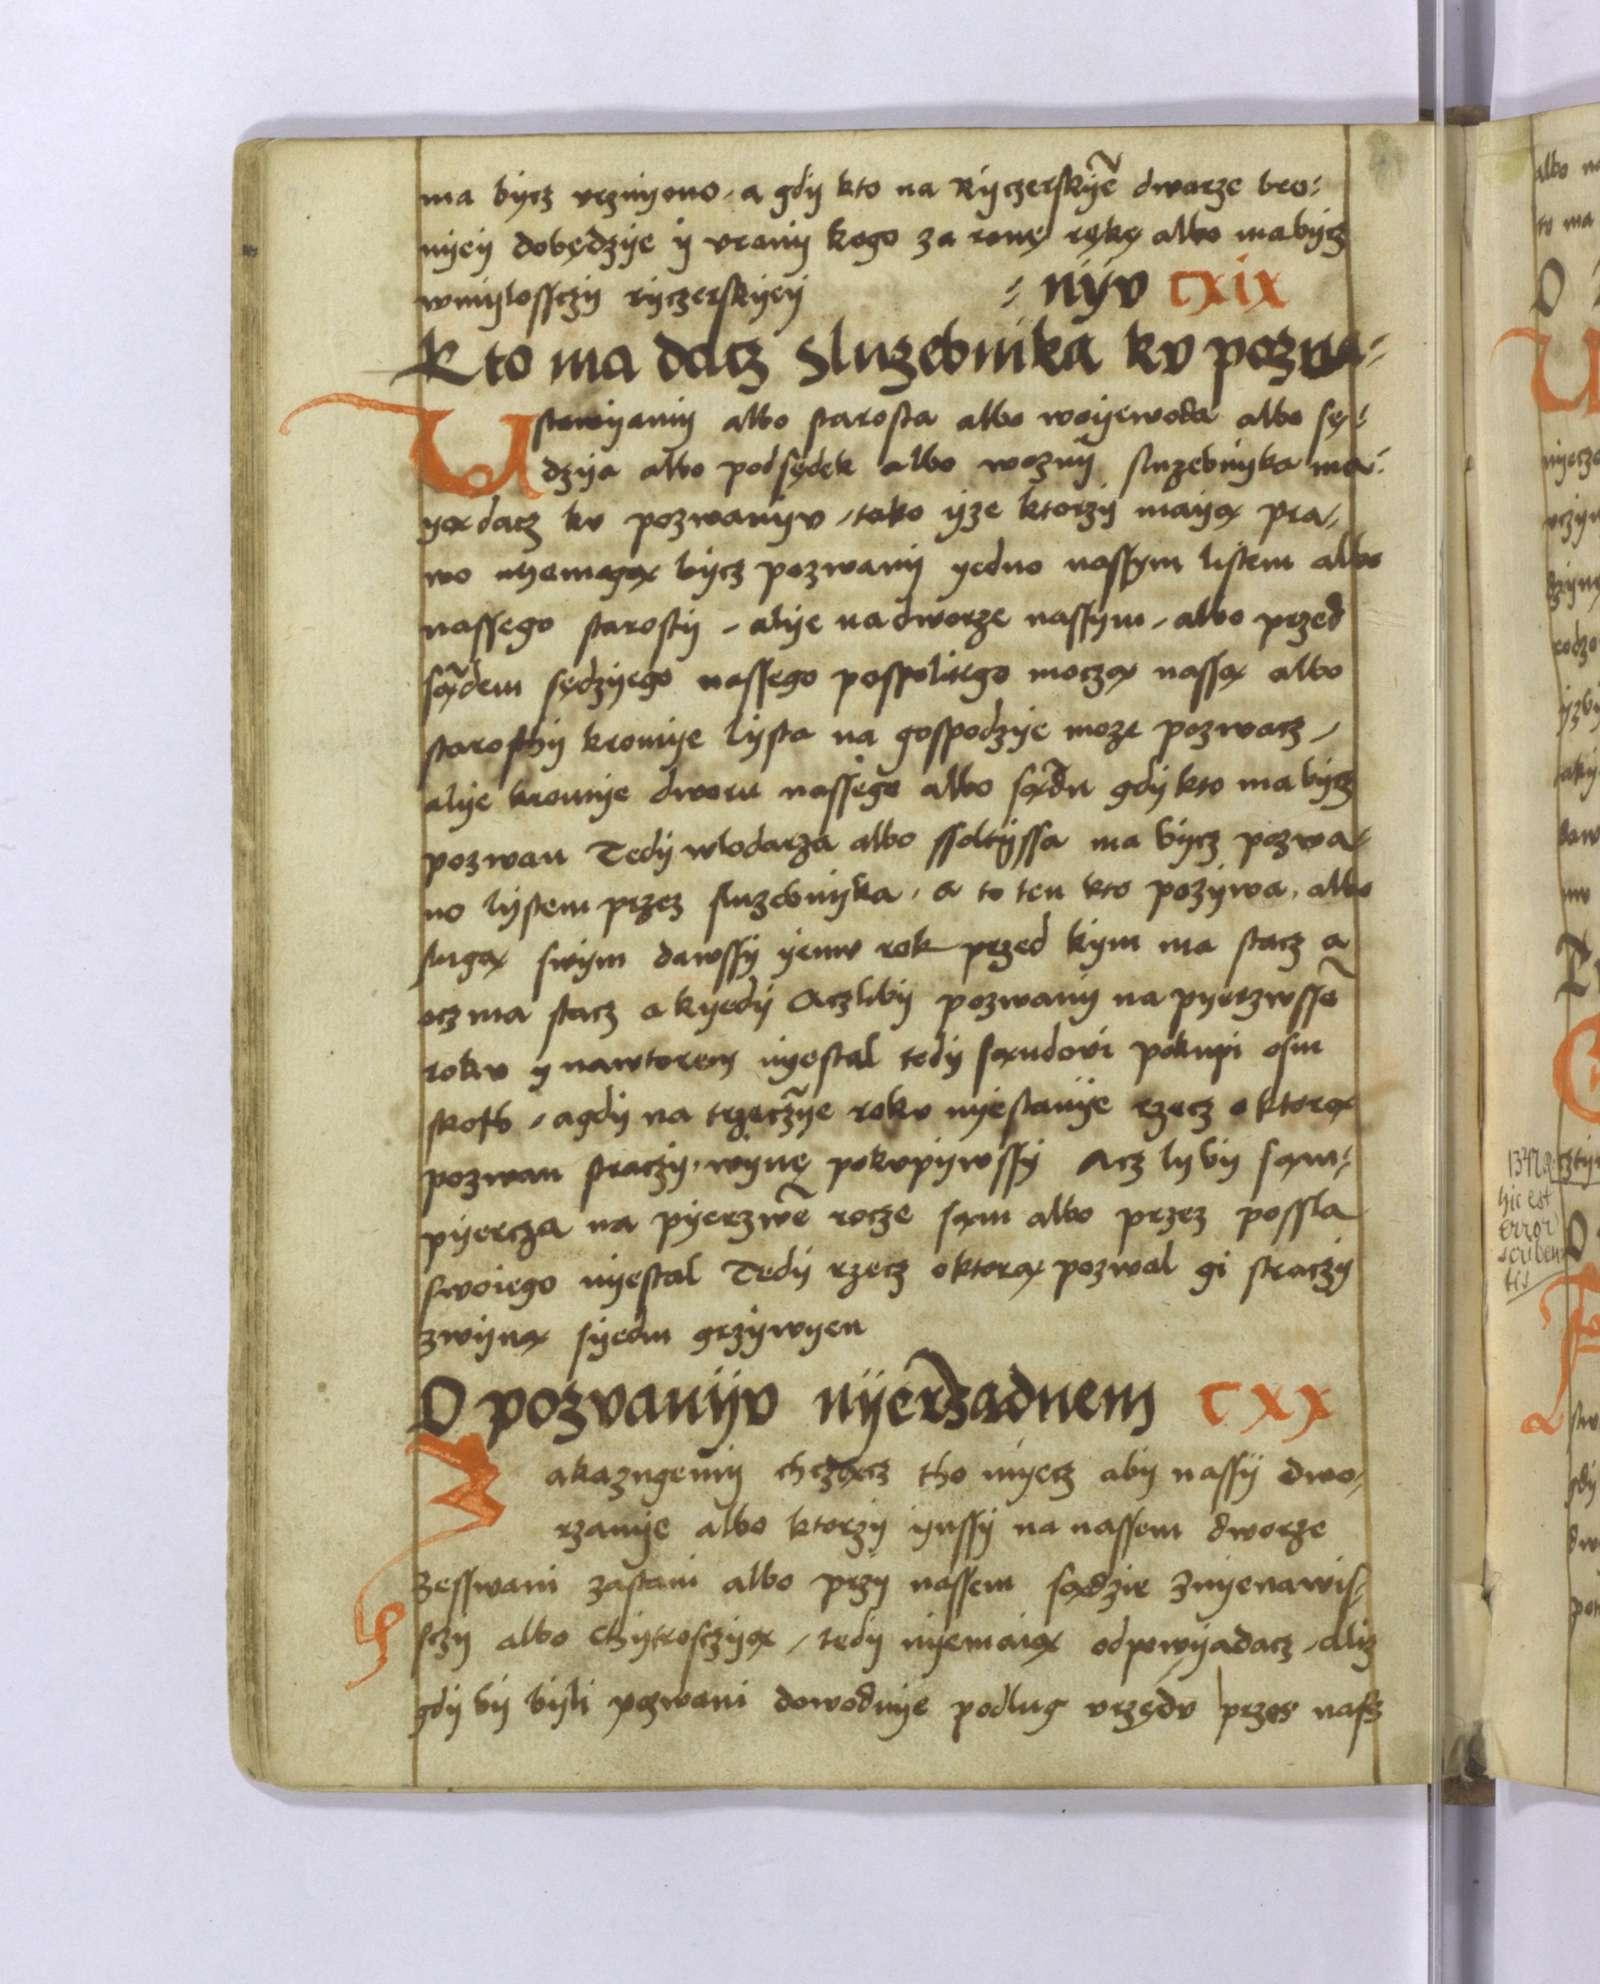 ma bycz vczinyono / a gdy kto na Ryczerskỹe dworze bro⸗
nyey dobędzye y vrany kogo za ronę rękę albo ma bycz
wmyłossczy ryczerskyey ⸗ nyv CXIX
Kto ma dacz Sluzebnika kv pozva⸗
Ustawyamy albo starosta albo woyewoda albo sę⸗
dzya albo podsędek albo wozny sluzebnyka ma⸗
yą dacz kv pozwanyv / tako yze ktorzy mayą pra⸗
wo nyemayą bycz pozwany yedno nassym listem albo
nassego starosty / alye na dworze nassym / albo przed
sądem sędzyego nassego pospolitego moczą nassą albo
starosthy kromye lysta na gospodzye moze pozwacz /
alye kromye dworu nassego albo sądu gdy kto ma bycz
pozwan Tedy wlodarza albo ssoltyssa ma bycz pozwa⸗
no lystem przez sluzebnyka / a to ten kto pozywa / albo
slugą swym dawssy yemv rok przed kym ma stacz a
ocz ma stacz a kyedy Aczliby pozwany na pyerzwssẽ
rokv y nawtorem nyestal tedy sąndovi pokupi osm
skoth / agdy na trzeczỹe rokv nyestanye rzecz o ktorą
pozwan straczy / wynę pokvpywssy Acz ly by sąm⸗
pyercza na pyerzwẽ rocze sąm albo przez possla
swoiego nyestal Tedy rzecz oktorą pozwal gi straczy
zwyną syedm grzywyen
O pozvanyv nyerzadnem CXX
Zakazugemy chcząncz tho myecz aby nassy dwo⸗
rzanye albo ktorzy ynssy na nassem dworze
zesswani zastani albo przy nassem sądzie znyenawis⸗
sczy albo Chytrosczyą / tedy nyemaią odpowyadacz / aliz
gdy by byli pozwani dowodnye podlug vrzędv przes nasz
1347 a.
hic est
Error
scriben
tis